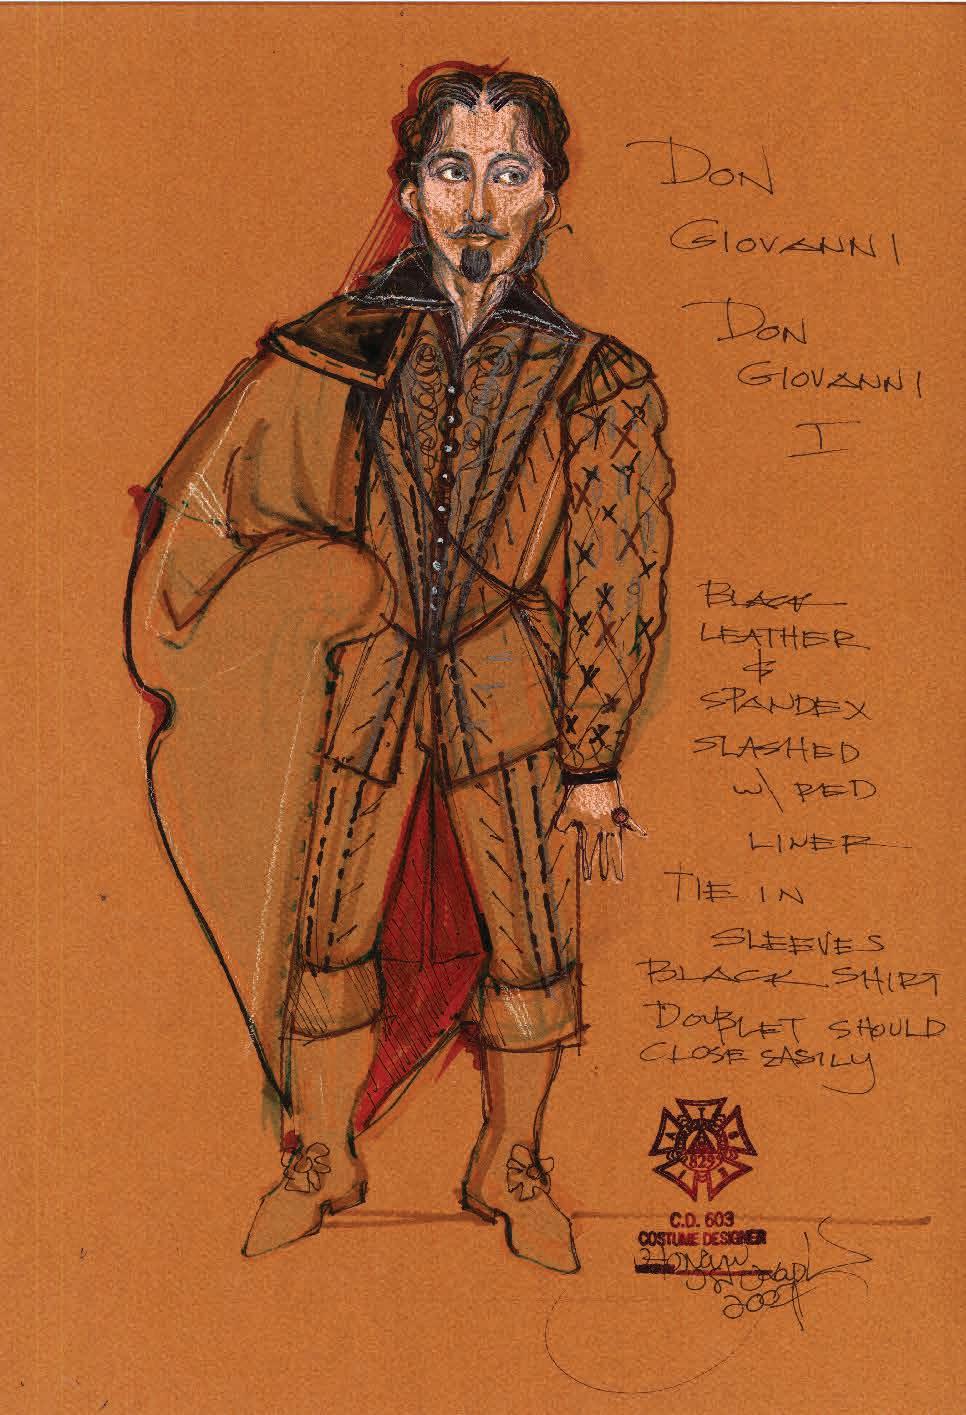 DON
GIOVANNI
DON
GIOVANNI
I
BLACK
LEATHER
&
SPANDEX
SLASHED
w\ RED
LINER
TIE IN
SLEEVES
BLACK SHIRT
DOUBLET SHOULD
CLOSE EASILY
829
C.D. 603
COSTUME DESIGNER